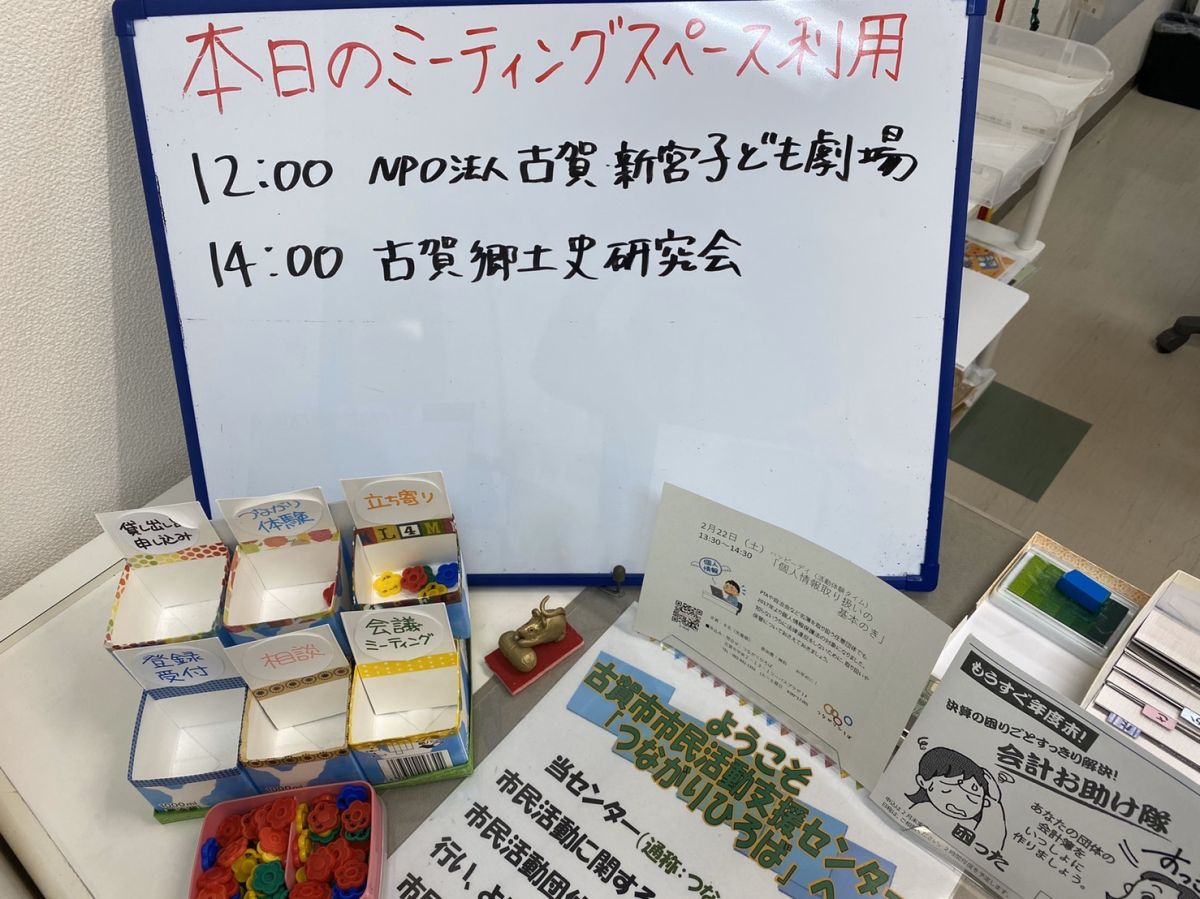 本日のミーティングスペース利用
12:00 NPO法人 古賀・新宮子ども劇場
14:00 古賀郷土史研究会
貸し出し
申し込み
つながり
体験
立ち寄り
L 4 M
登録
受付
相談
会議
ミーティング
1000ml
2月22日（土）
13:30～14:30
ハッピーデイ（活動体験タイム）
「個人情報取り扱いの
基本のき」
個人
情報
ようこそ
古賀市市民活動支援センター
「つながりひろば」へ
当センター（通称：つな
市民活動に関する
市民活動団体
行い、よ
もうすぐ年度末！
決算の困りごとすっきり解決！
会計お助け隊
あなたの団体の
会計簿を
いっしょに
作りましょう。
困った